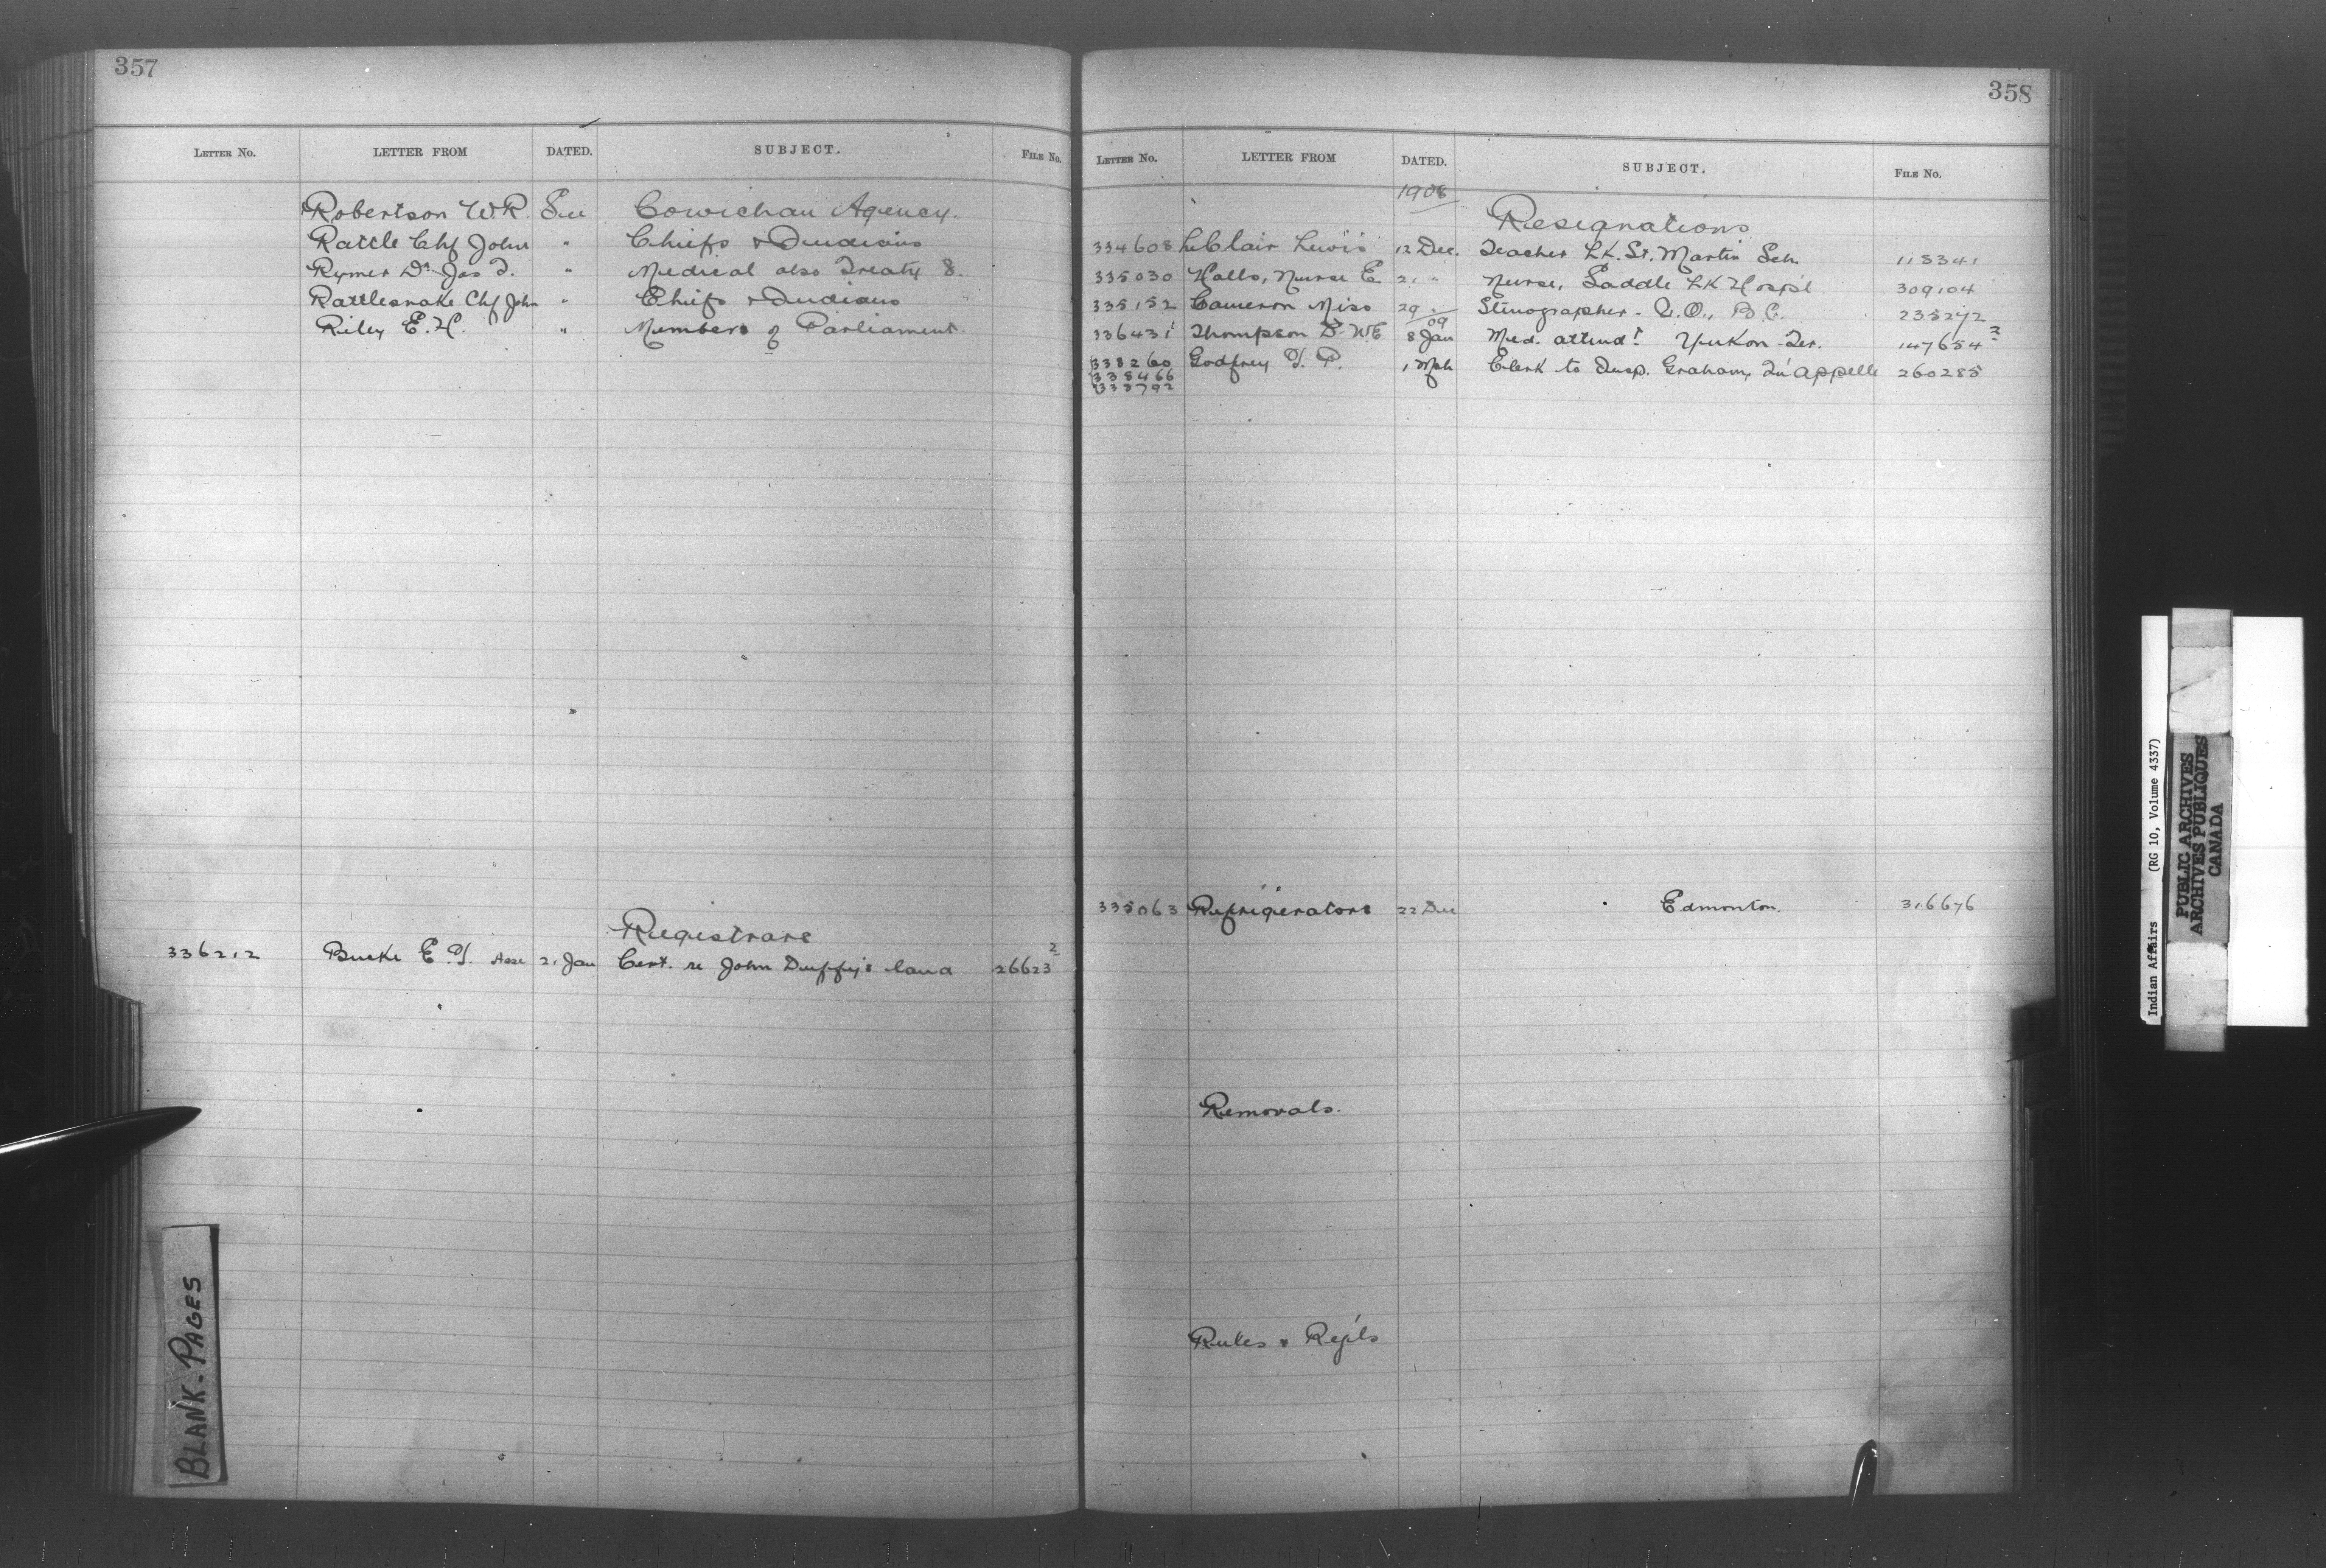 357
LETTER NO. LETTER FROM DATED. SUBJECT. FILE NO.
Robertson W.R. See Cowichan Agency.
Rattle Chf John " Chiefs & Indians
Rymer Dr Jas T. " Medical also Treaty 8.
Rattlesnake Chf John " Chiefs & Indians
Riley E.H. " Members of Parliament
Registrars
336212 Burke E.J. Asse 21 Jan Cert. re John Duffy's land 26623 2
358
LETTER NO. LETTER FROM DATED. SUBJECT. FILE NO.
1908
Resignations
334608 LeClair Lewis 12 Dec. Teacher Lk. St. Martin Sch. 118341
335030 Halls, Nurse E. 21 " Nurse, Saddle Lk Hosp'l 309104
335152 Cameron Miss 29 " Stenographer - I.O., B.C. 235272
09
336431 Thompson Dr W.E 8 Jan Med. attend't Yukon Ter. 147654 2
338260 Godfrey J. P. 1 Mch Clerk to Insp. Graham, Qu'Appelle 260285
338466
333792
335063 Refrigerators 22 Dec Edmonton. 316676
Removals.
Rules & Reg'ls
BLANK-PAGES
Indian Affairs (RG 10, Volume 4337)
PUBLIC ARCHIVES
ARCHIVES PUBLIQUES
CANADA